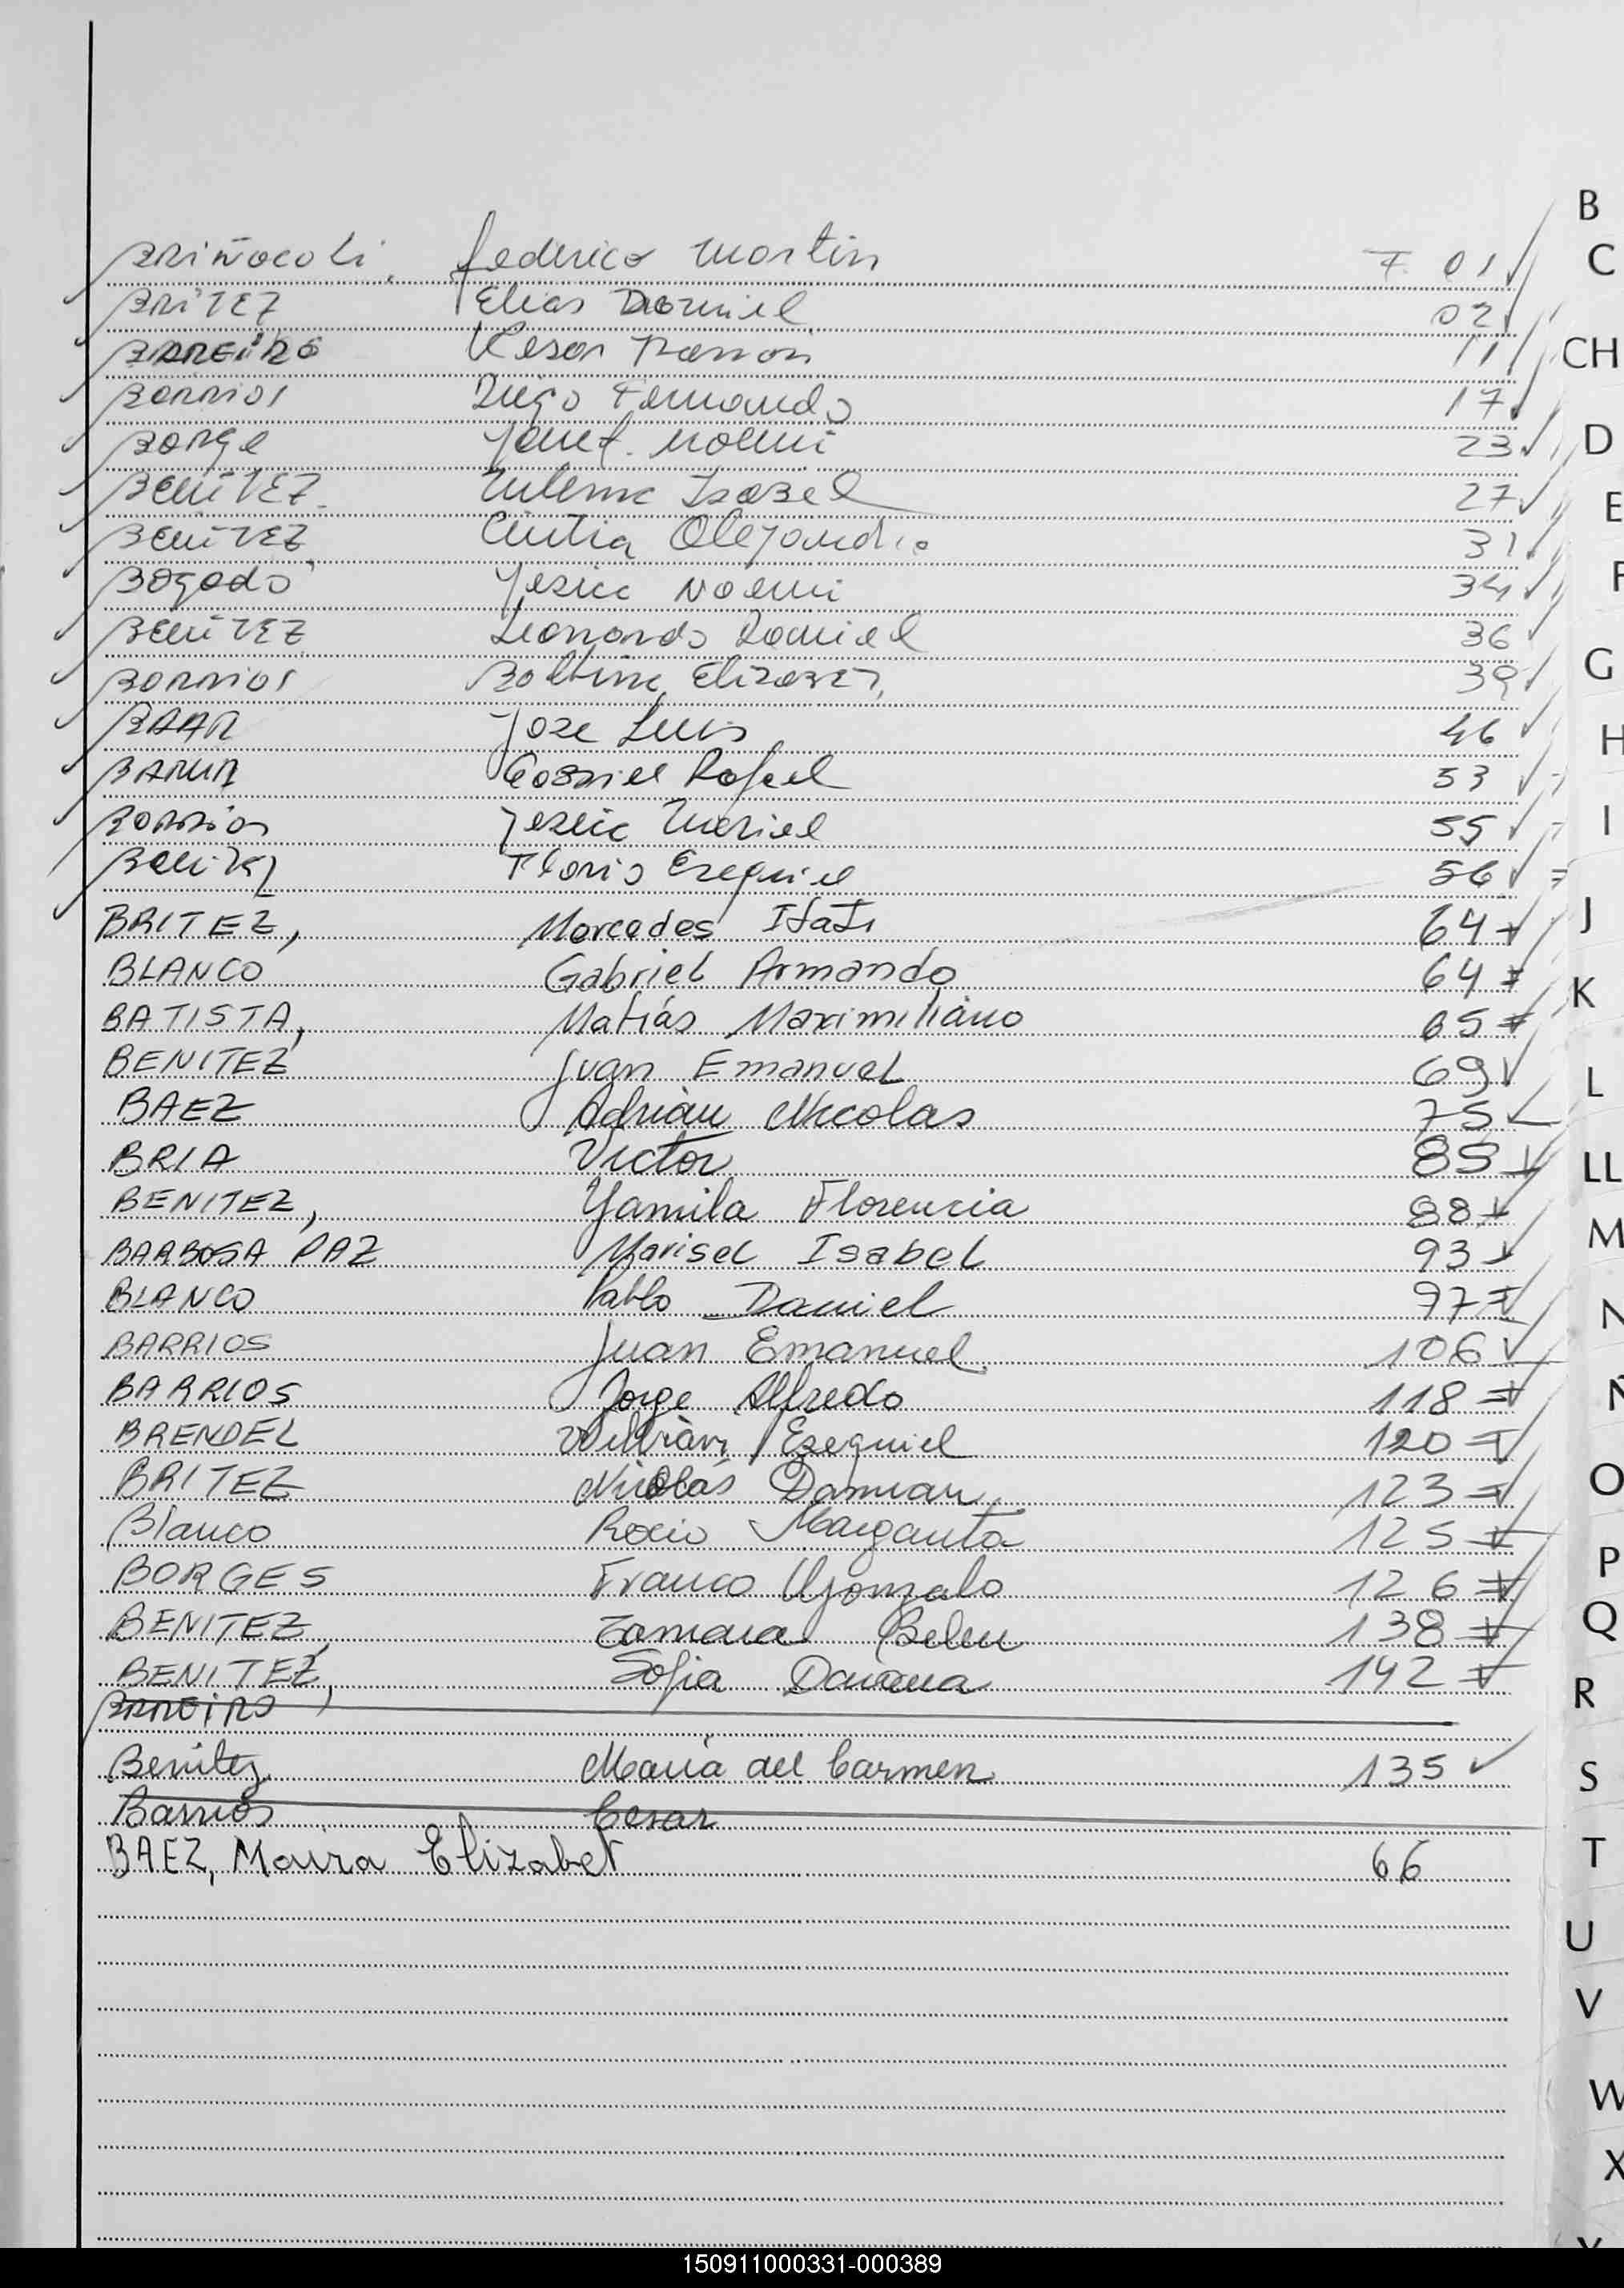 BRIÑOCOLI. Federico Martin F. 01
BRITEZ Elias Daniel 02
BAREIRO Cesar Ramon 11
Barrios Diego Fernando 17
Borge Janet Noemi 23
BENITEZ Isabel 27
BENITEZ Cintia Alejandra 31
Bogado Jesica Noemi 34
BENITEZ Leonardo Daniel 36
Barrios 39
BAAR Jose Luis 46
Gabriel Rafael 53
Barrios Jesica Mariel 55
Benitez Ezequiel 56
BRITEZ, Mercedes Itati 64
BLANCO Gabriel Armando 64
BATISTA, Matías Maximiliano 65
BENITEZ Juan Emanuel 69
BAEZ Adrián Nicolas 75
BRIA Victor 85
BENITEZ, Yamila Florencia 88
BARBOSA PAZ Marisel Isabel 93
BLANCO Pablo Daniel 97
BARRIOS Juan Emanuel 106
BARRIOS Jorge Alfredo 118
BRENDEL Willian Ezequiel 120
BRITEZ Nicolás Damian 123
Blanco Rocio Margarita 125
BORGES Franco Gonzalo 126
BENITEZ, Tamara Belen 138
BENITEZ, Sofia Daiana 142
BAREIRO
Benitez Maria del Carmen 135
Barrios Cesar
BAEZ, Maira Elizabet 66
B
C
CH
D
E
F
G
H
I
J
K
L
LL
M
N
Ñ
O
P
Q
R
S
T
U
V
W
X
150911000331-000389